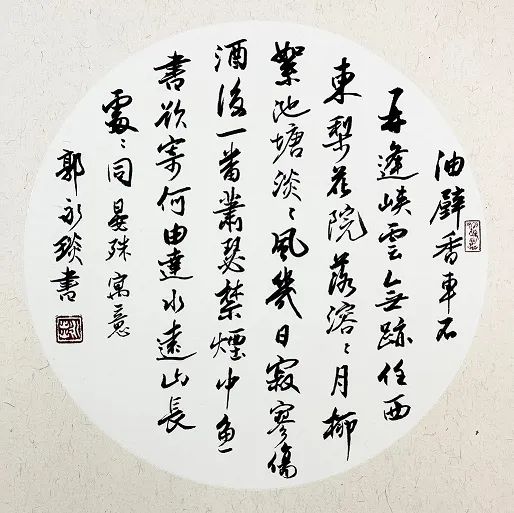 油壁香車不
再逢峽雲無跡任西
東梨花院落溶々月柳
絮池塘淡々風幾日寂寥傷
酒後一番蕭瑟禁煙中魚
書欲寄何由達水遠山長
處々同 晏殊寓意
郭永琰書